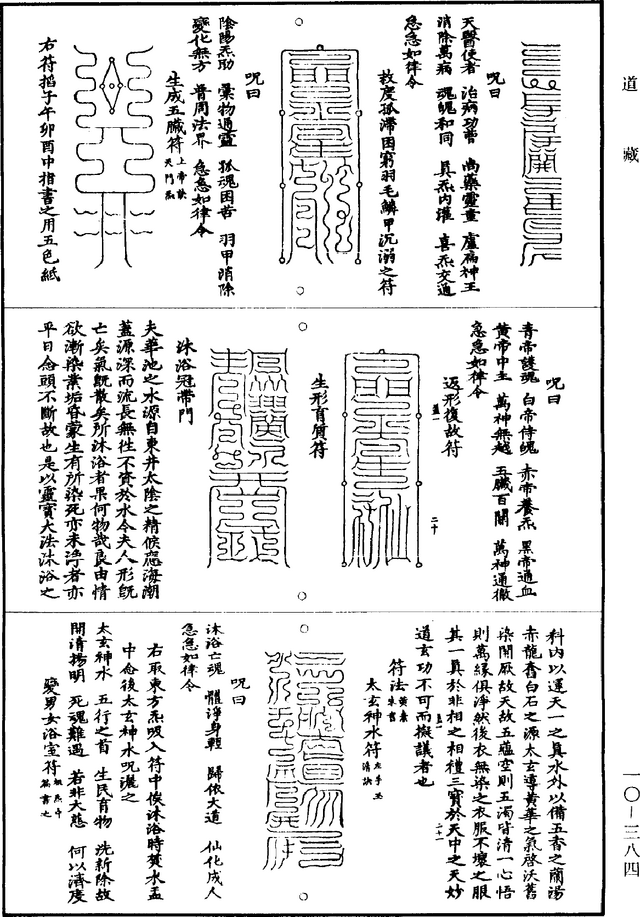 道藏
呪曰
天醫使者 治病功曹 尚藥靈童 盧扁神王
消除萬病 魂魄和同 真炁內灌 喜炁交通
急急如律令
救度孤滯困窮羽毛鱗甲沉溺之符
呪曰
陰陽炁助 彙物通靈 孤魂困苦 羽甲消除
變化無方 普周法界 急急如律令
生成五臟符
右符掐子午卯酉中指書之用五色紙
呪曰
青帝護魂 白帝侍魄 赤帝養炁 黑帝通血
黃帝中主 萬神無越 五臟百關 萬神通徹
急急如律令
返形復故符
二十
生形育質符
沐浴冠帶門
夫華池之水源自東井太陰之精候應海潮
蓋源深而流長無徃不資於水令夫人形旣
亡矣氣旣散矣所沐浴者果何物哉良由情
欲漸染業垢昏蒙生有所染死亦未淨者亦
平日念頭不斷故也是以靈寶大法沐浴之
科內以運天一之真水外以備五香之蘭湯
赤龍舂白石之源太玄導黃華之氣啓沃舊
染開厥故天故五蘊空則五濁皆清一心悟
則萬緣俱淨然後衣無染之衣服不壞之服
其一真於非相之相禮三寶於天中之天妙
道玄功不可而擬議者也
二十一
符法黃素朱書
太玄神水符
呪曰
沐浴亡魂 懼淨身輕 歸依大道 仙化成人
急急如律令
右取東方炁吸入符中俟沐浴時貯水盂
中念後太玄神水呪灑之
太玄神水 五行之首 生民育物 洗新除故
開清揚明 死魂難遇 若非大慈 何以濟度
變男女浴室符
一〇—三八四